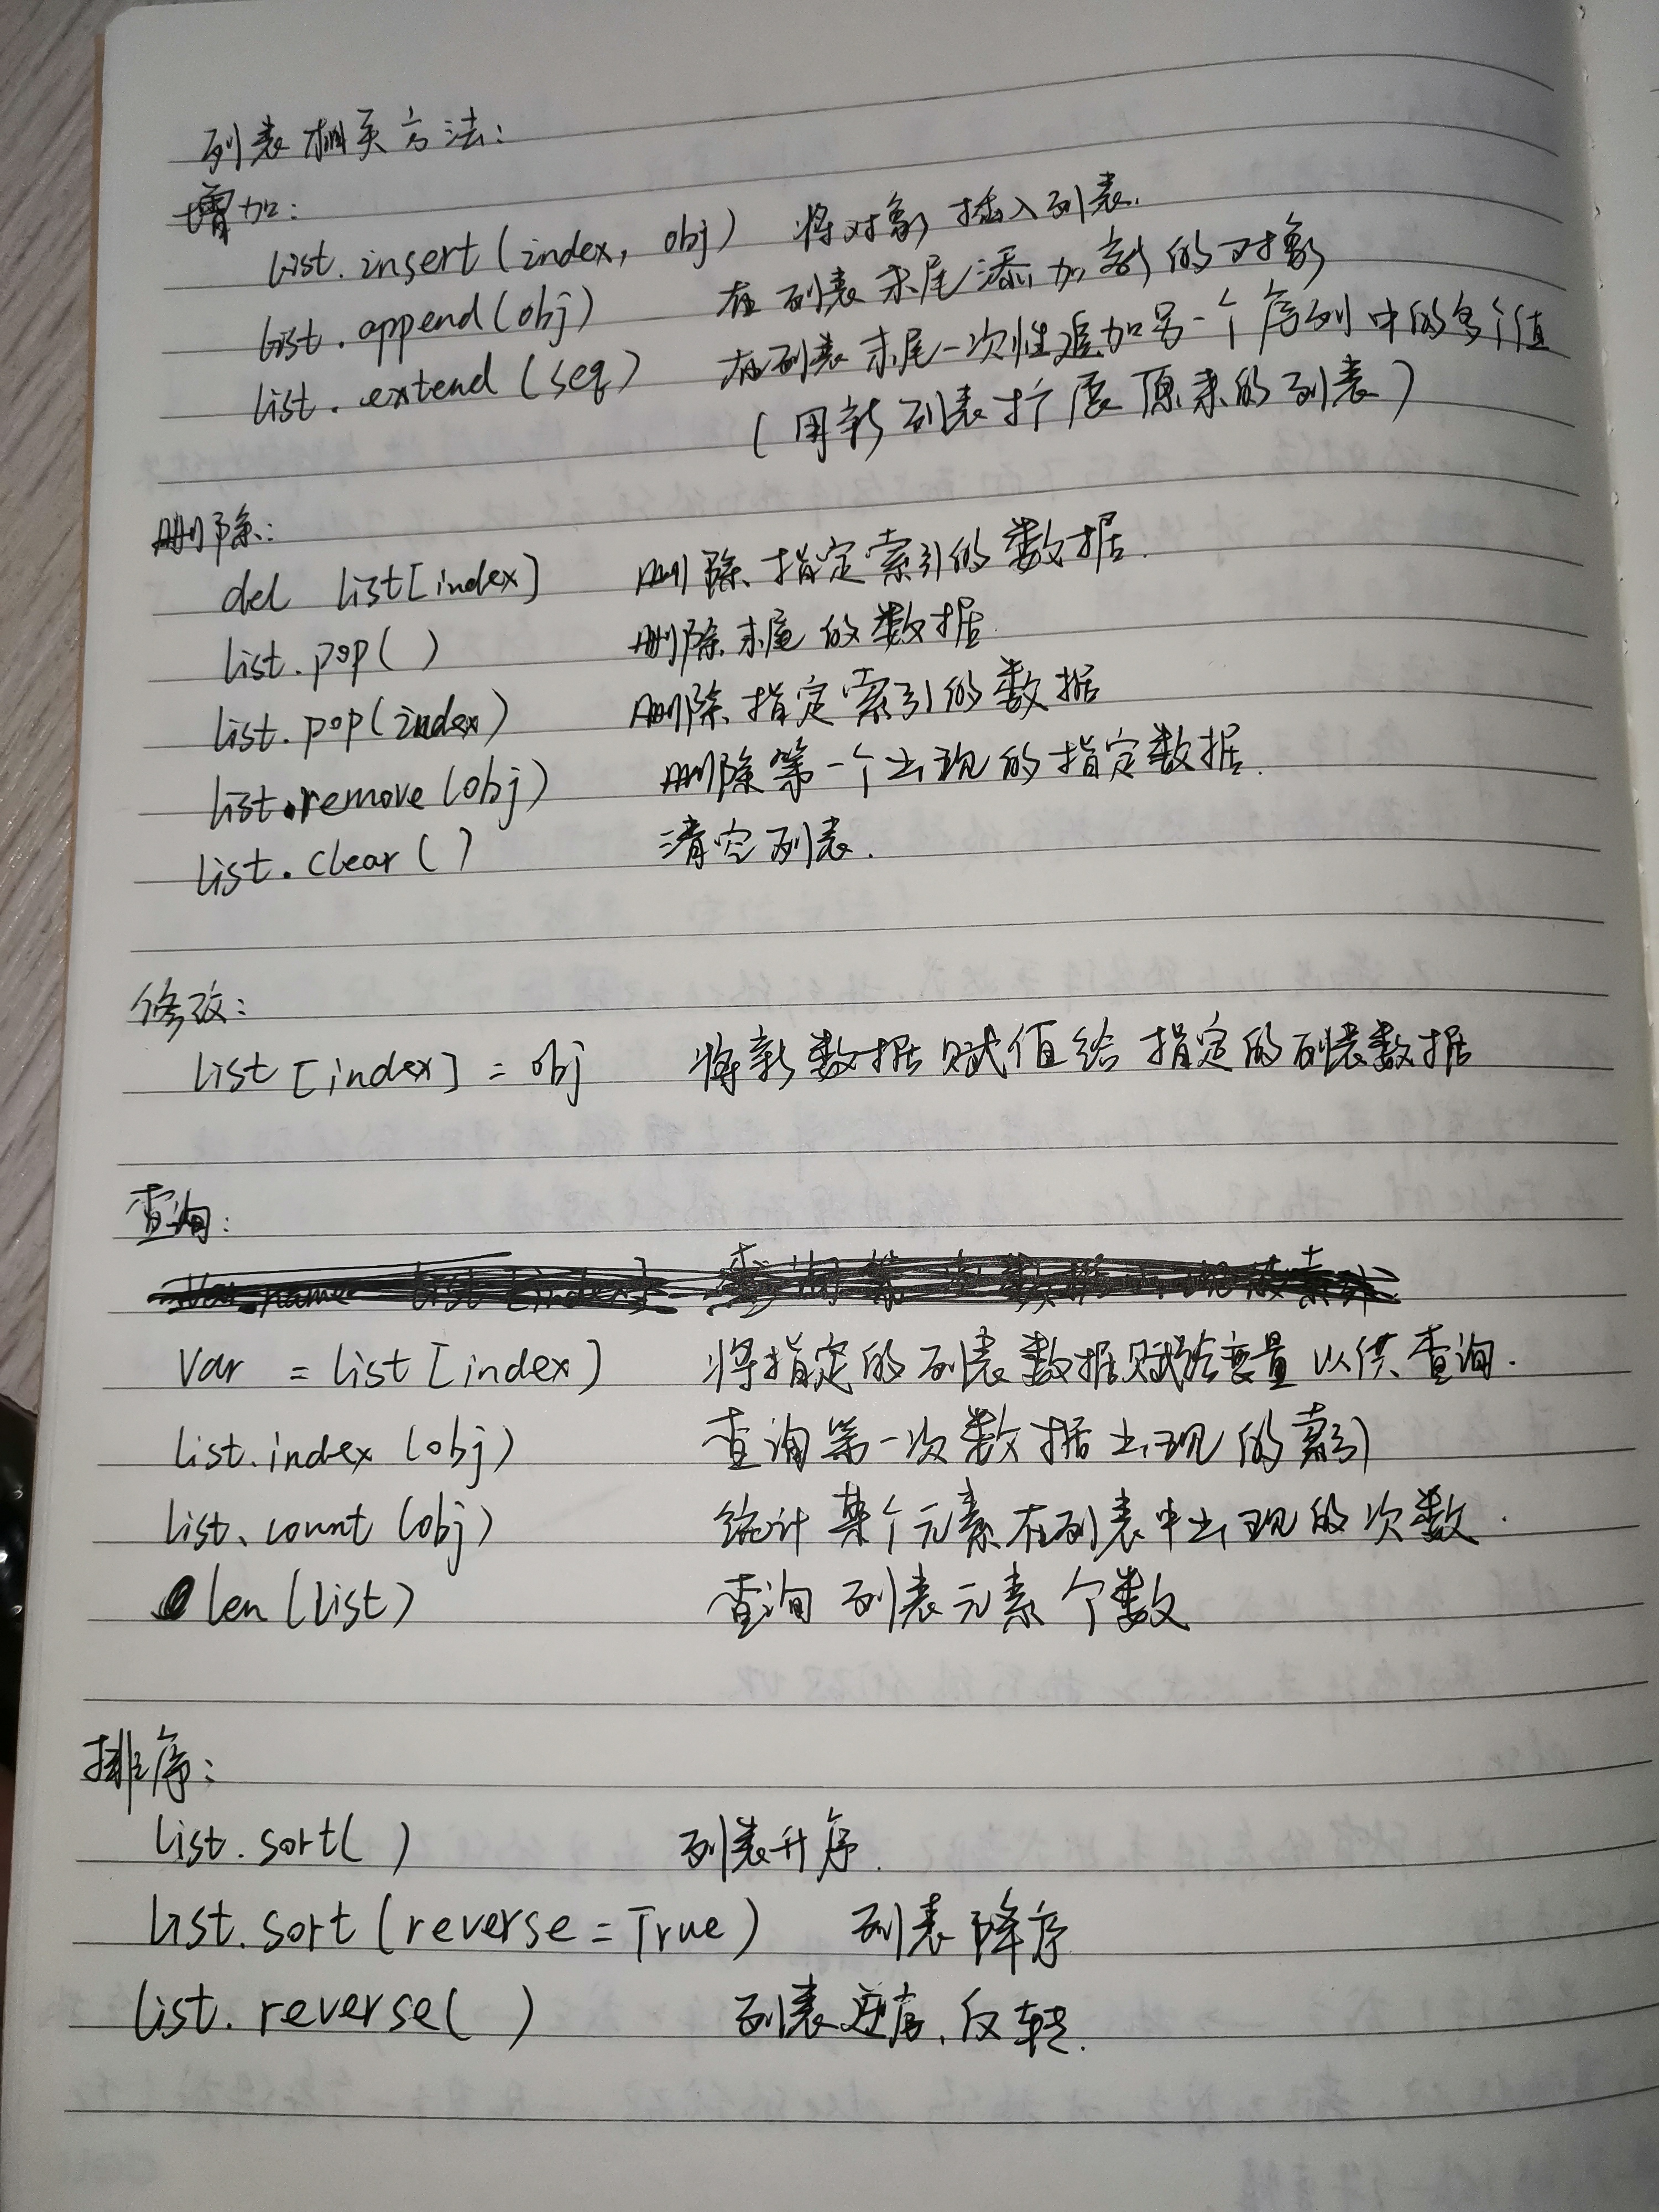 列表相关方法:
增加:
list.insert(index, obj) 将对象插入列表.
list.append(obj) 在列表末尾添加新的对象
list.extend(seq) 在列表末尾一次性追加另一个序列中的多个值
(用新列表扩展原来的列表)
删除:
del list[index] 删除指定索引的数据.
list.pop( ) 删除末尾的数据.
list.pop(index) 删除指定索引的数据
list.remove(obj) 删除第一个出现的指定数据.
list.clear( ) 清空列表.
修改:
list[index] = obj 将新数据赋值给指定的列表数据
查询:
Var = list[index] 将指定的列表数据赋给变量以供查询.
list.index(obj) 查询第一次数据出现的索引
list.count(obj) 统计某个元素在列表中出现的次数.
len(list) 查询列表元素个数
排序:
list.sort( ) 列表升序.
list.sort(reverse=True) 列表降序
list.reverse( ) 列表逆序、反转.